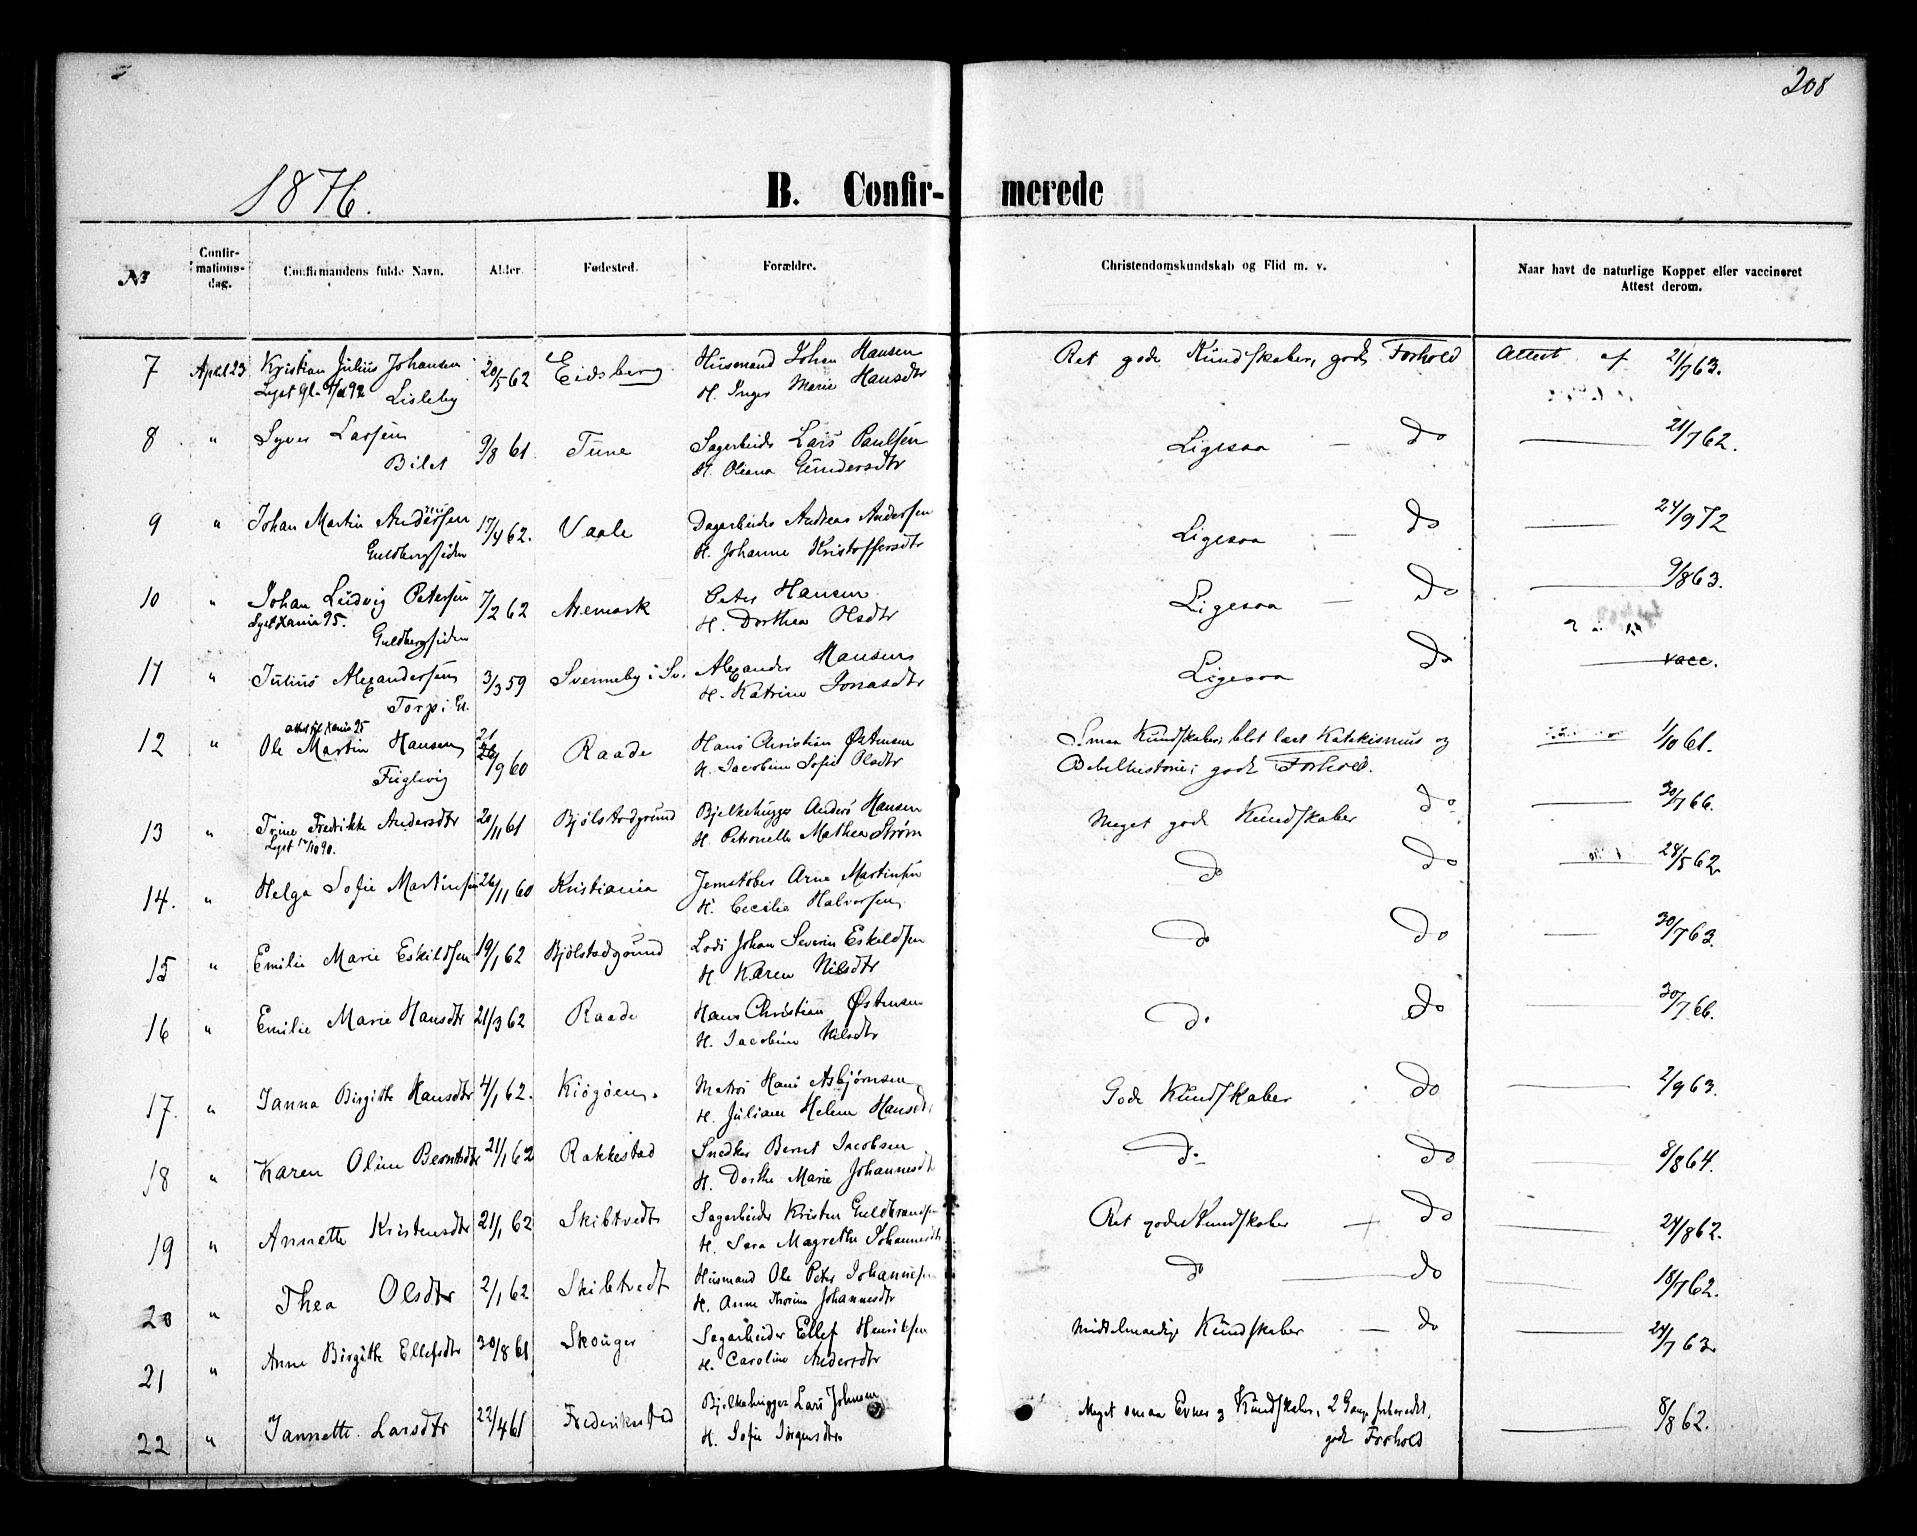 208
1876.
B. Confir- merede
№ Confir-mations-dag. Confirmandens fulde Navn. Alder. Fødested. Forældre. Christendomskundskab og Flid m. v. Naar havt de naturlige Kopper eller vaccineret Attest derom.
7 April 23 Kristian Julius Johansen 20/5 62 Eidsberg Husmand Johan Hansen Ret gode Kundskaber, godt Forhold Attest af 21/7 63.
Lisleby H. Inger Marie Hansdtr
8 " Syver Larsen 9/8 61. Tune Sagarbeider Lars Paulsen Ligesaa — do — 21/7 62.
Bilet H. Oleana Gundersdtr
9 " Johan Martin Andersen 17/4 62. Vaale Dagarbeider Andreas Andersen Ligesaa — do — 24/9 72
Guldbergsiden H. Johanne Kristoffersdtr
10 " Johan Ludvig Petersen 7/2 62 Aremark Peter Hansen Ligesaa — do — 9/8 63.
Lyst Xania 95. Guldbergsiden H. Dorthea Olsdtr
11 " Julius Alexandersen 3/3 59 Svenneby i Sv. Alexander Hansen Ligesaa do — vacc.
Torp i Gl. H. Katrine Jonasdtr
12 " Ole Martin Hansen 26/9 60 Raade Hans Christian Østensen Smaa Kundskaber, blot læst Katekismus og 1/10 61.
Fuglevig H. Jacobine Sofie Olsdtr Bibelhistorie; godt Forhold.
13 " Trine Fredrikke Andersdtr 20/11 61 Bjølstadgrund Bjelkehugger Anders Hansen Meget gode Kundskaber do — 30/7 66.
Lyst 12/10 90. H. Petronelle Mathea Strøm
14. " Helga Sofie Martinsen 26/11 60 Kristiania Jernstøber Arne Martinsen do do — 28/5 62
H. Cecilie Halvorsen
15 " Emilie Marie Eskildsen 19/1 62 Bjølstadgrund Lods Johan Severin Eskildsen do do — 30/7 63.
H. Karen Nilsdtr
16 " Emilie Marie Hansdtr 21/3 62 Raade Hans Christian Østensen do do — 30/7 66.
H. Jacobine Nilsdtr
17. " Janna Birgitte Hansdtr 4/1 62. Kiøgøen. Matros Hans Asbjørnsen Gode Kundskaber do — 2/9 63.
H. Juliane Helene Hansdtr
18 " Karen Oline Berntsdtr 21/1 62 Rakkestad Snedker Bernt Jacobsen do do — 8/8 64.
H. Dorthe Marie Johannesdtr
19 " Annette Kristensdtr 21/1 62 Skibtvedt Sagarbeider Kristen Guldbrandsen Ret gode Kundskaber — do — 24/8 62.
H. Sara Magrethe Johannesdtr
20 " Thea Olsdtr 2/1 62 Skibtvedt Husmand Ole Peter Johannesen do — do — 18/7 62.
H. Anne Thorine Johannesdtr
21 " Anne Birgitte Ellefsdtr 30/8 61 Skouger Sagarbeider Ellef Henriksen Middelmaadige Kundskaber — do — 24/7 63
H. Caroline Andersdtr
22 " Jannette Larsdtr 22/4 61 Frederikstad Bjelkehugger Lars Johnsen Meget smaa Evner og Kundskaber, 2 Gange forberedt, — 8/8 62.
H. Sofie Jørgensdtr godt Forhold